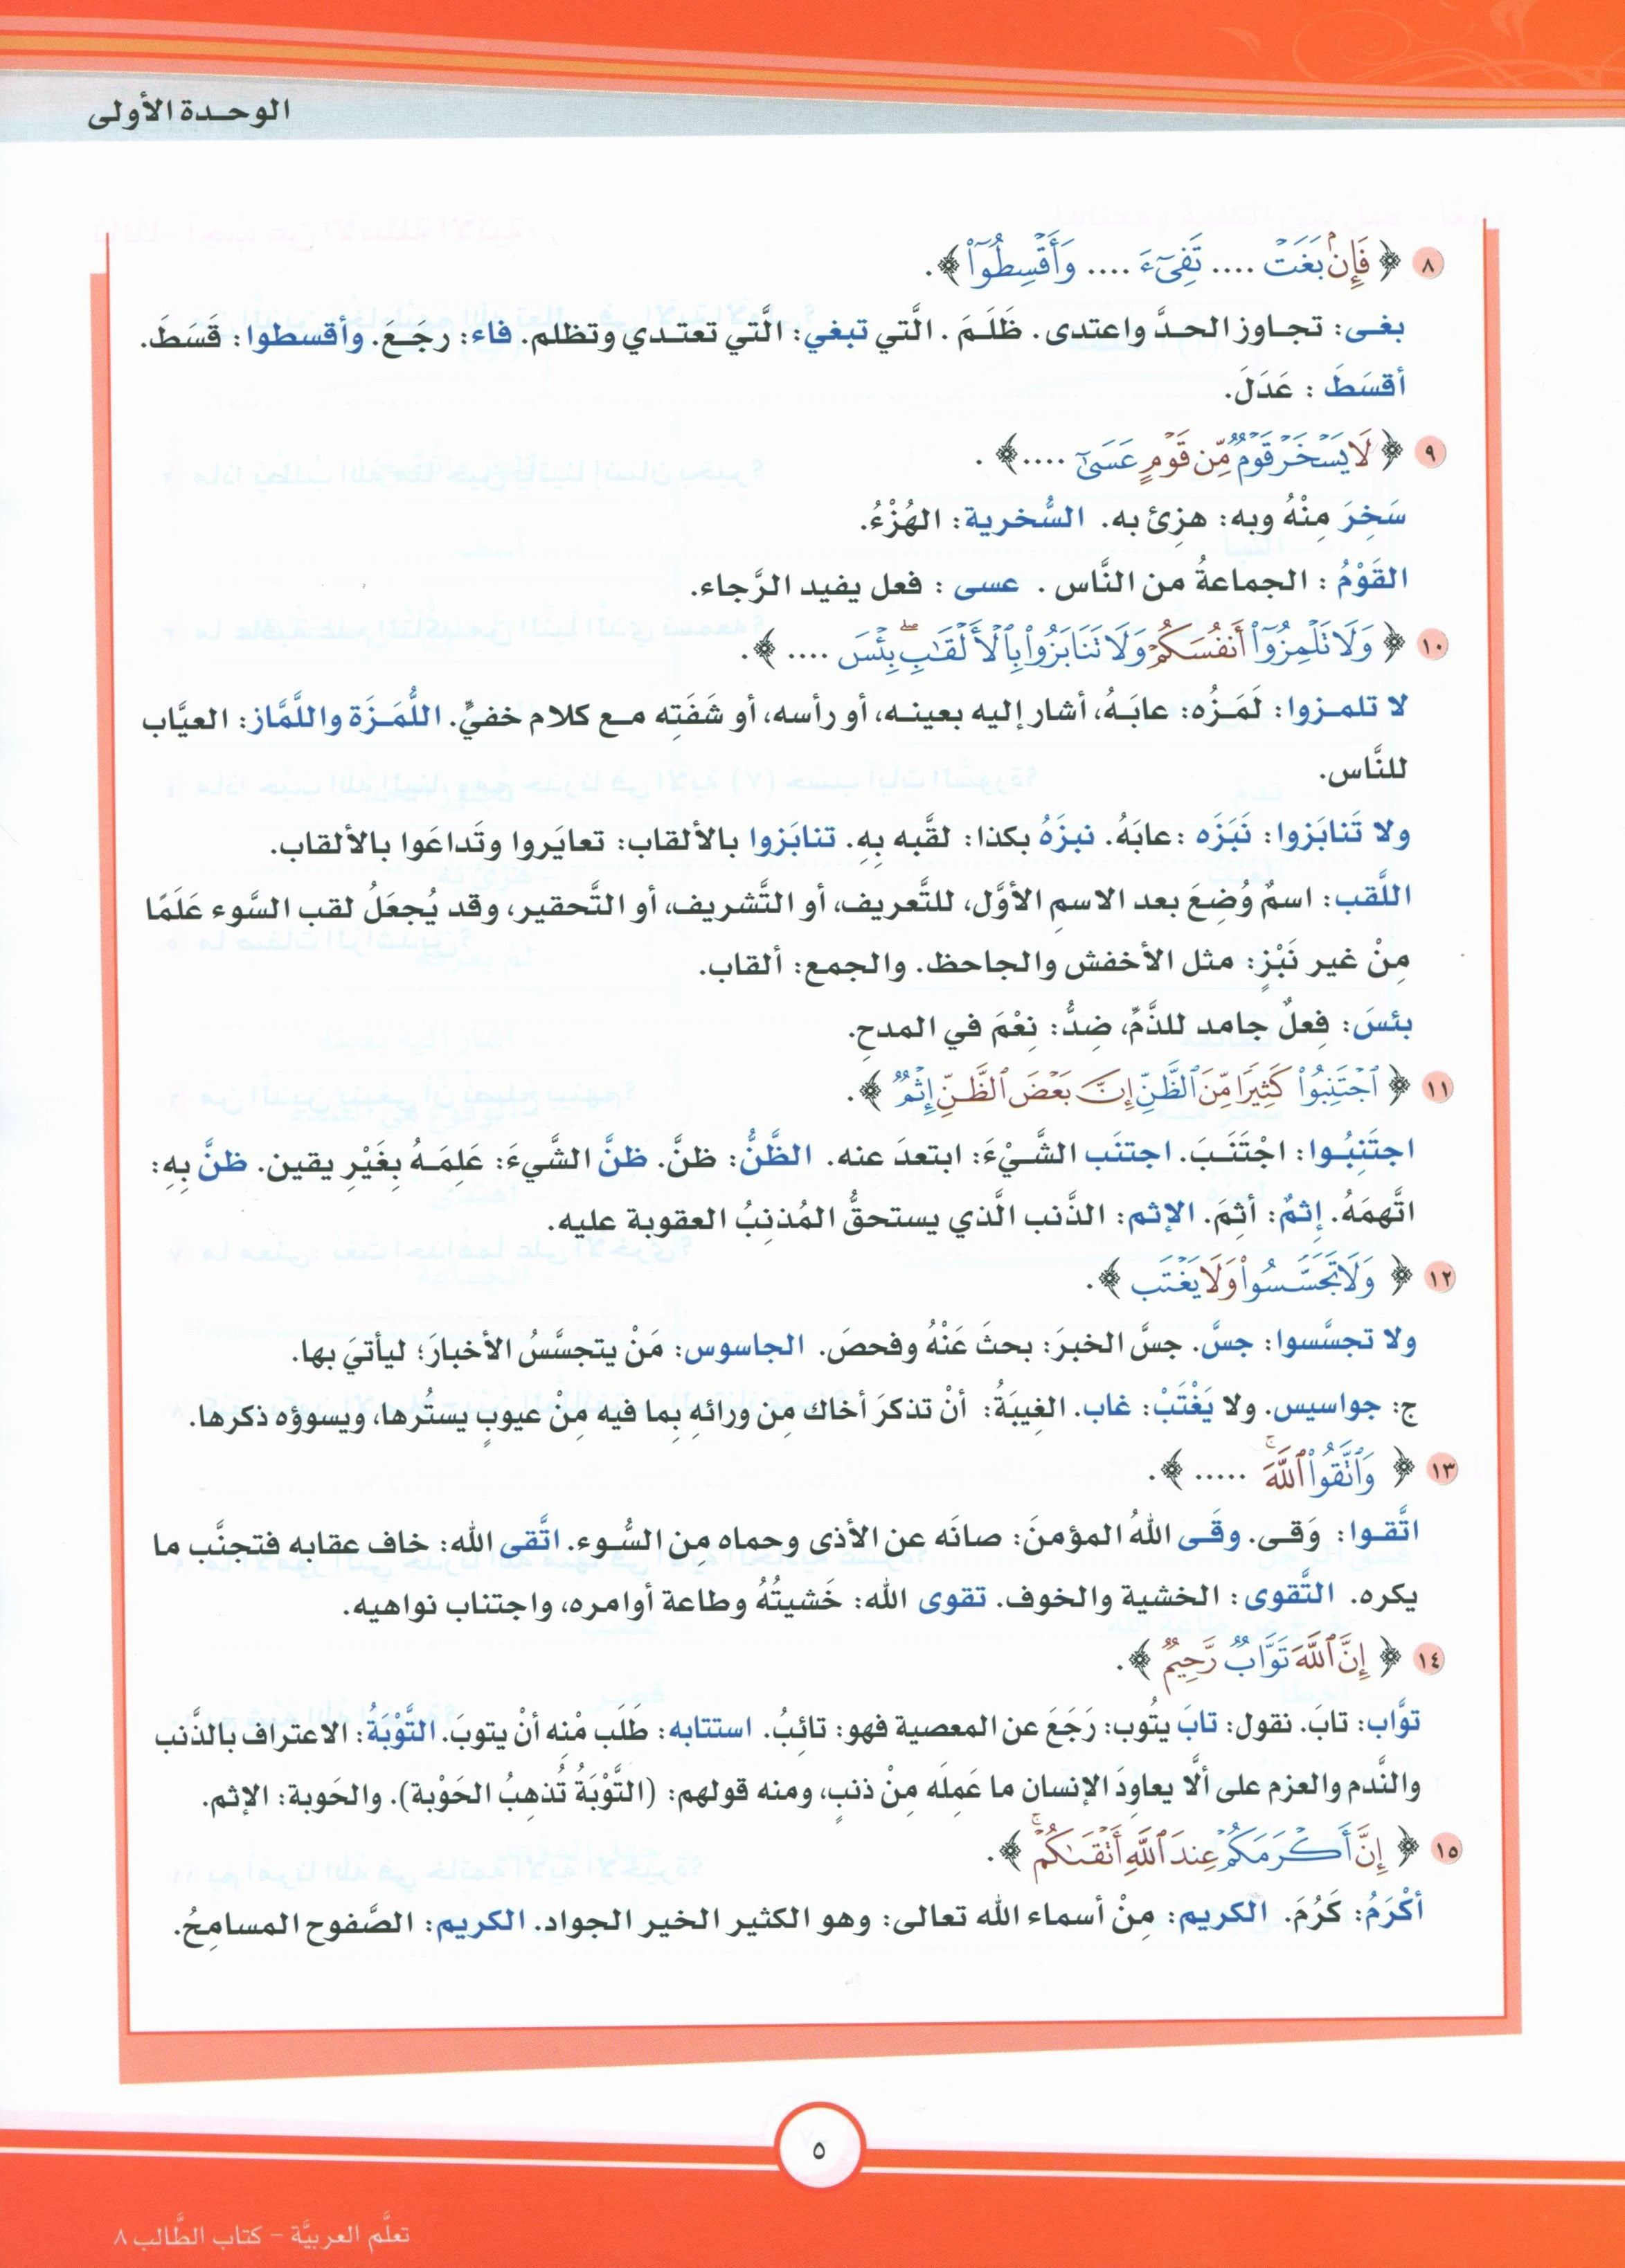 الوحدة الأولى
٨ ﴿ فَإِنۢ بَغَتۡ .... تَفِيٓءَ .... وَأَقۡسِطُوٓاْ ﴾.
بغى: تجاوز الحدَّ واعتدى. ظَلَمَ. الَّتي تبغي: الَّتي تعتدي وتظلم. فاء: رجَعَ. وأقسطوا: قَسَطَ.
أقسَطَ : عَدَلَ.
٩ ﴿ لَا يَسۡخَرۡ قَوۡمٌ مِّن قَوۡمٍ عَسَىٰٓ .... ﴾ .
سَخِرَ مِنْهُ وبه: هزِئ به. السُّخرية: الهُزْءُ.
القَوْمُ : الجماعةُ من النَّاس . عسى : فعل يفيد الرَّجاء.
١٠ ﴿ وَلَا تَلۡمِزُوٓاْ أَنفُسَكُمۡ وَلَا تَنَابَزُواْ بِٱلۡأَلۡقَٰبِۖ بِئۡسَ .... ﴾.
لا تلمـزوا: لَمَزُه: عابَهُ، أشار إليه بعينه، أو رأسه، أو شَفَتِه مع كلام خفيٍّ. اللُّمَزَة واللَّمَّاز: العيَّاب
للنَّاس.
ولا تَنابَزوا: نَبَزَه :عابَهُ. نبزَهُ بكذا: لقَّبه بِهِ. تنابَزوا بالألقاب: تعايَروا وتَداعَوا بالألقاب.
اللَّقب: اسمٌ وُضِعَ بعد الاسمِ الأوَّل، للتَّعريف، أو التَّشريف، أو التَّحقير، وقد يُجعَلُ لقب السَّوء عَلَمًا
مِنْ غير نَبْزٍ: مثل الأخفش والجاحظ. والجمع: ألقاب.
بئسَ: فِعلٌ جامد للذَّمِّ، ضِدُّ: نِعْمَ في المدحِ.
١١ ﴿ ٱجۡتَنِبُواْ كَثِيرٗا مِّنَ ٱلظَّنِّ إِنَّ بَعۡضَ ٱلظَّنِّ إِثۡمٞ ﴾.
اجتَنِبُـوا: اجْتَنَبَ. اجتنَب الشَّيْءَ: ابتعدَ عنه. الظَّنُّ: ظنَّ. ظنَّ الشَّيءَ: عَلِمَهُ بِغَيْرِ يقين. ظنَّ بِهِ:
اتَّهمَهُ. إثمٌ: أثمَ. الإثم: الذَّنب الَّذي يستحقُّ المُذنِبُ العقوبة عليه.
١٢ ﴿ وَلَا تَجَسَّسُواْ وَلَا يَغۡتَب ﴾.
ولا تجسَّسوا: جسَّ. جسَّ الخبرَ: بحثَ عَنْهُ وفحصَ. الجاسوس: مَنْ يتجسَّسُ الأخبارَ؛ ليأتيَ بها.
ج: جواسيس. ولا يَغْتَبْ: غاب. الغِيبَةُ: أنْ تذكرَ أخاك مِن ورائهِ بِما فيه مِنْ عيوبٍ يستُرها، ويسوؤه ذكرها.
١٣ ﴿ وَٱتَّقُواْ ٱللَّهَۚ ..... ﴾.
اتَّقـوا: وَقـى. وقَى اللهُ المؤمنَ: صانَه عن الأذى وحماه مِن السُّوء. اتَّقى الله: خاف عقابه فتجنَّب ما
يكره. التَّقوى: الخشية والخوف. تقوى الله: خَشيتُهُ وطاعة أوامره، واجتناب نواهيه.
١٤ ﴿ إِنَّ ٱللَّهَ تَوَّابٞ رَّحِيمٞ ﴾.
توَّاب: تابَ. نقول: تابَ يتُوب: رَجَعَ عن المعصية فهو: تائبٌ. استتابه: طَلَب مْنِه أنْ يتوبَ. التَّوْبَةُ: الاعتراف بالذَّنب
والنَّدم والعزم على ألَّا يعاوِدَ الإنسان ما عَمِلَه مِنْ ذنبٍ، ومنه قولهم: (التَّوْبَةُ تُذهِبُ الحَوْبة). والحَوبة: الإثم.
١٥ ﴿ إِنَّ أَكۡرَمَكُمۡ عِندَ ٱللَّهِ أَتۡقَىٰكُمۡۚ ﴾.
أكْرَمُ: كَرُمَ. الكريم: مِنْ أسماء الله تعالى: وهو الكثير الخير الجواد. الكريم: الصَّفوح المسامِحُ.
٥
تعلَّم العربيَّة - كتاب الطَّالب ٨